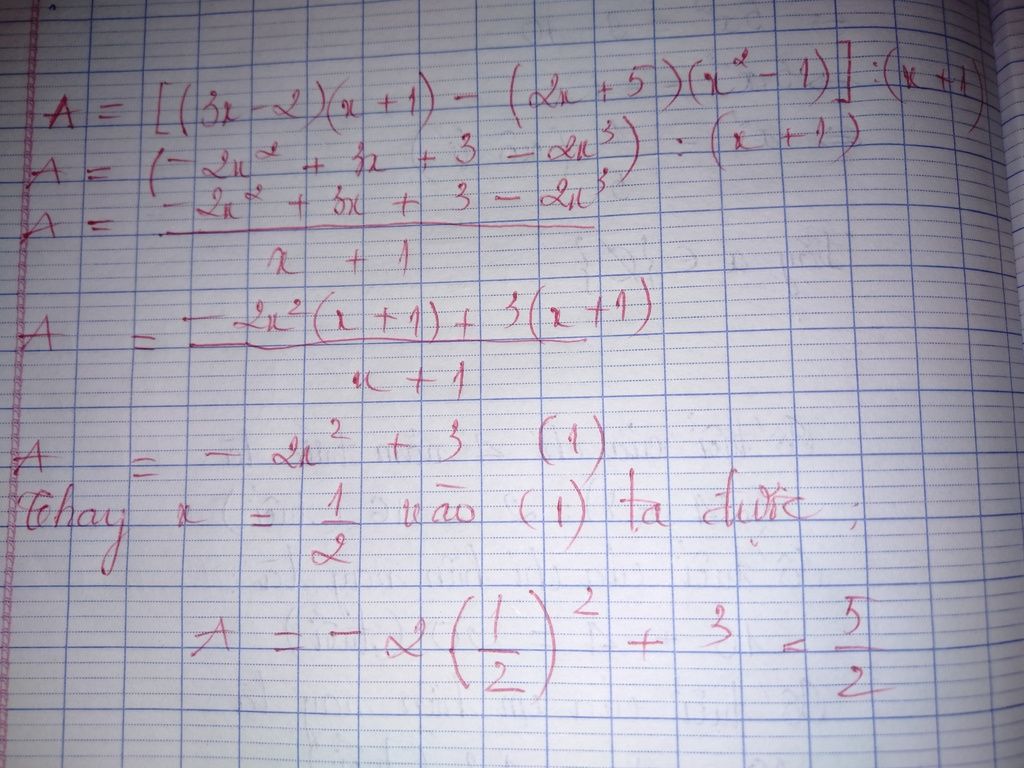 A = [(3x - 2)(x + 1) - (2x + 5)(x² - 1)] : (x + 1)
A = (- 2x² + 3x + 3 - 2x³) : (x + 1)
A = - 2x² + 3x + 3 - 2x³
x + 1
A = - 2x²(x + 1) + 3(x + 1)
x + 1
A = - 2x² + 3 (1)
Thay x = 1/2 vào (1) ta được :
A = - 2(1/2)² + 3 = 5/2